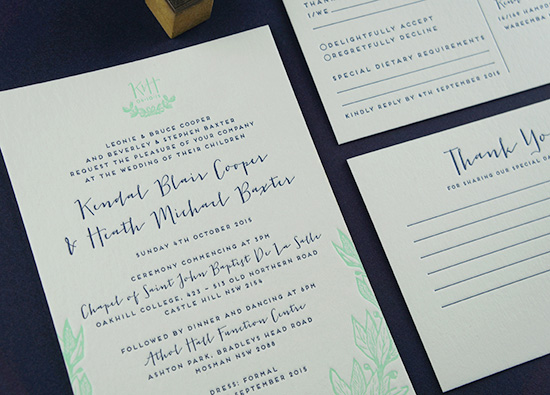 K & H
LEONIE & BRUCE COOPER
AND BEVERLEY & STEPHEN BAXTER
REQUEST THE PLEASURE OF YOUR COMPANY
AT THE WEDDING OF THEIR CHILDREN
Kendal Blair Cooper
& Heath Michael Baxter
SUNDAY 4TH OCTOBER 2015
CEREMONY COMMENCING AT 3PM
Chapel of Saint John Baptist De La Salle
OAKHILL COLLEGE, 423 - 513 OLD NORTHERN ROAD
CASTLE HILL NSW 2154
FOLLOWED BY DINNER AND DANCING AT 6PM
Athol Hall Function Centre
ASHTON PARK, BRADLEYS HEAD ROAD
MOSMAN NSW 2088
DRESS: FORMAL
SEPTEMBER 2015
I/WE
DELIGHTFULLY ACCEPT
REGRETFULLY DECLINE
SPECIAL DIETARY REQUIREMENTS
KINDLY REPLY BY 6TH SEPTEMBER 2015
WAREEMBA
Thank You
FOR SHARING OUR SPECIAL